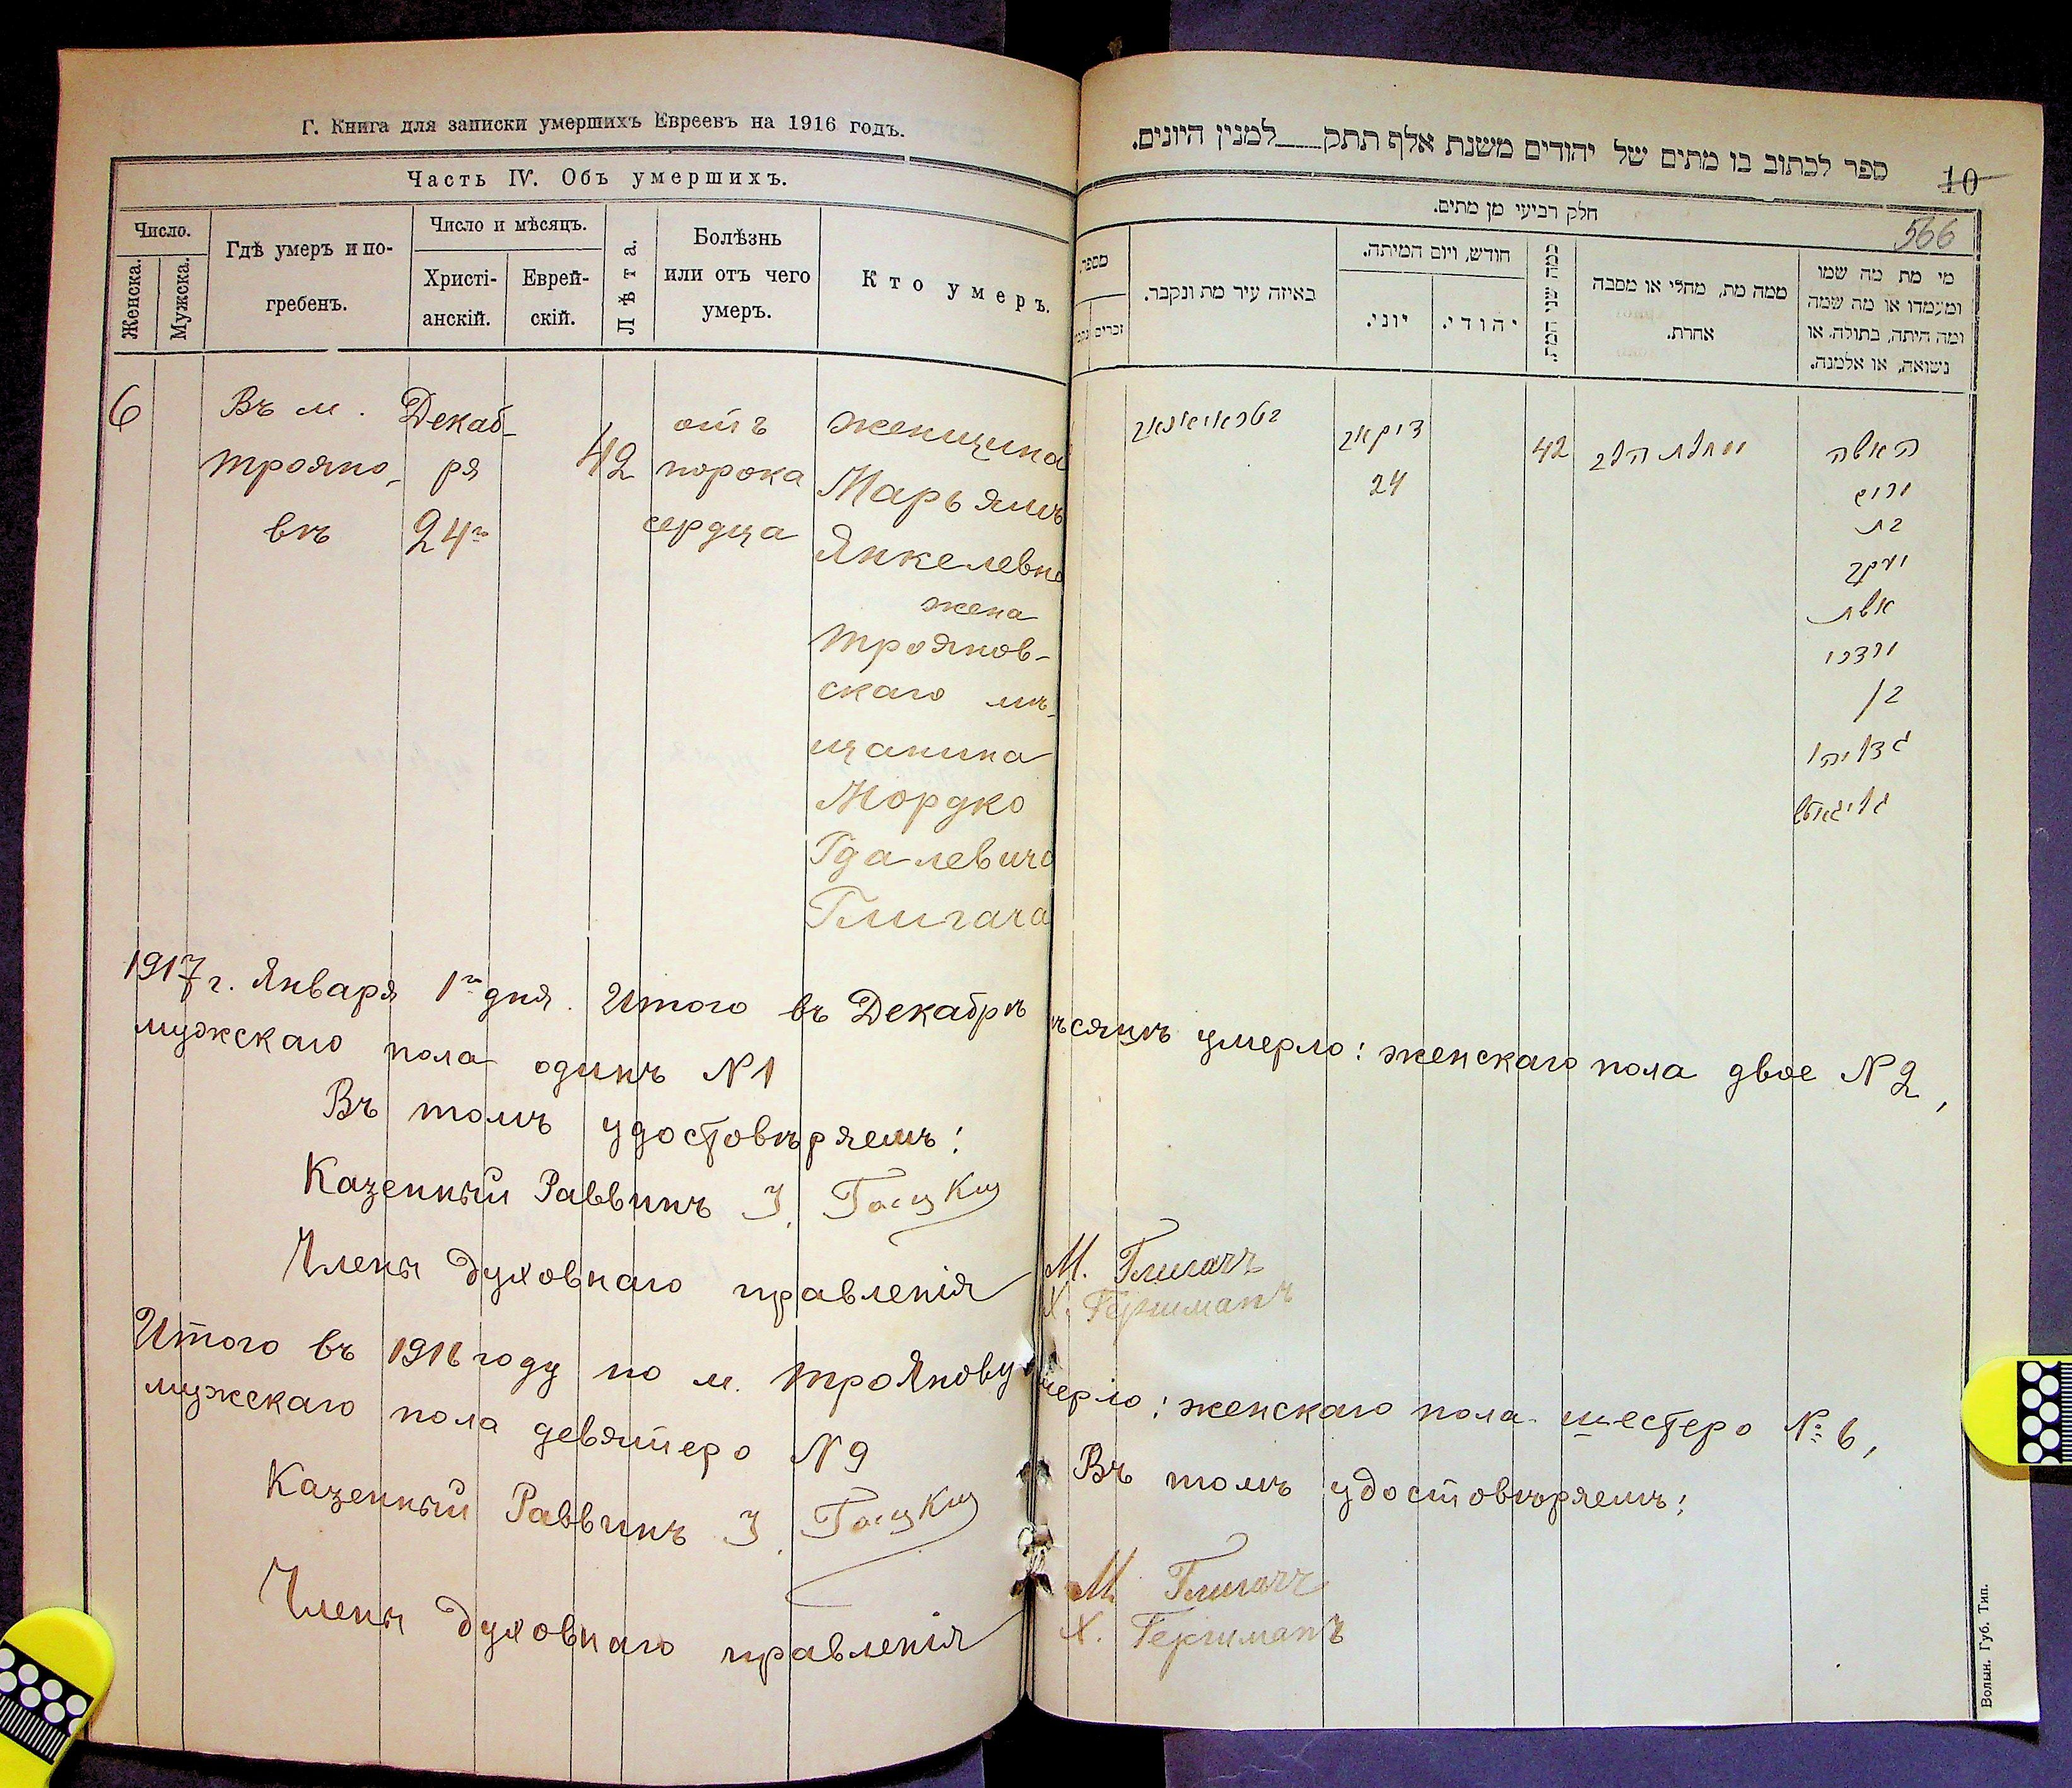 Г. Книга для записки умершихъ Евреевъ на 1916 годъ.
Часть IV. Объ умершихъ.
Число.
Женска.
Мужска.
Гдѣ умеръ и по-
гребенъ.
Число и мѣсяцъ.
Христі-
анскій.
Еврей-
скій.
Лѣта.
Болѣзнь
или отъ чего
умеръ.
Кто умеръ.
6
Въ м.
Трояно-
вѣ
Декаб-
ря
24го
42
отъ
порока
сердца
женщина
Марьямъ
Янкелевна
жена
Трояновъ-
скаго мѣ-
щанина
Мордко
Гдалевича
Глигача
1917 г. Января 1го дня. Итого въ Декабрѣ
мужскаго пола одинъ № 1
Въ томъ удостовѣряемъ:
Казенный Раввинъ
Члены духовнаго правленія
Итого въ 1916 году по м. Троянову
мужскаго пола девятеро № 9
Казенный Раввинъ
Члены духовнаго правленія
ספר לכתוב בו מתים של יהודים משנת אלף תתק___למנין היונים.
10
566
חלק רביעי מן מתים.
מספר
זכרים
באיזה עיר מת ונקבר.
חודש, ויום המיתה.
יוני.
יהודי.
כמה שני המת.
ממה מת, מחלי או מסבה
אחרת.
מי מת מה שמו
ומעמדו או מה שמה
ומה היתה, בתולה, או
נשואה, או אלמנה.
דיקאב
24
42
האשה
בת
יעקב
אשת
מרדכי
בן
גדליהו
גליגאטש
ѣсяцѣ умерло: женскаго пола двое № 2,
М. Глигачъ
Х. Гершманъ
мерло: женскаго пола шестеро № 6,
Въ томъ удостовѣряемъ:
М. Глигачъ
Х. Гершманъ
Волын. Губ. Тип.